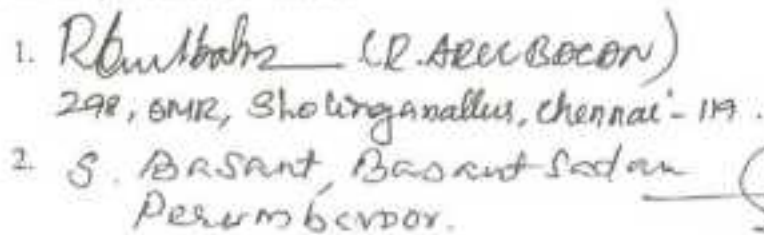 1. (R. ARULBOCON)
298, OMR, Sholinganallur, Chennai - 119.
2. S. Basant, Basant Sadan
Perumbavoor.